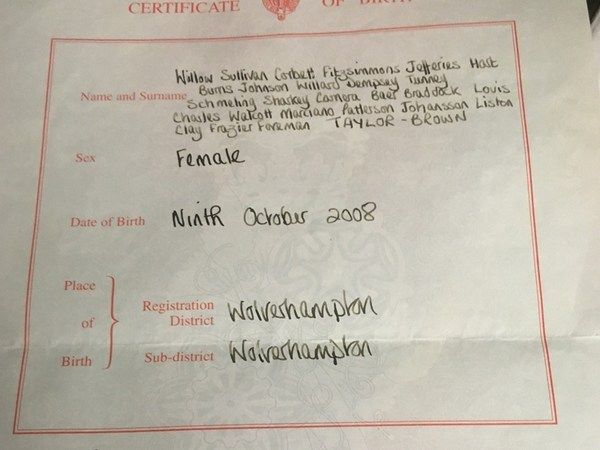 CERTIFICATE OF BIRTH
Name and Surname
Willow Sullivan Corbett Fitzsimmons Jefferies Hart
Burns Johnson Willard Dempsey Tunney
Schmeling Sharkey Carnera Baer Braddock Louis
Charles Walcott Marciano Patterson Johansson Liston
Clay Frazier Foreman TAYLOR-BROWN
Sex Female
Date of Birth Ninth October 2008
Place
of
Birth
Registration
District Wolverhampton
Sub-district Wolverhampton